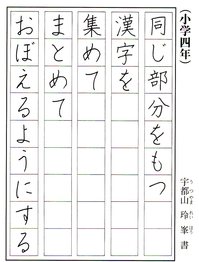 (小学四年)
宇都山玲峯書
同じ部分をもつ
漢字を
集めて
まとめて
おぼえるようにする